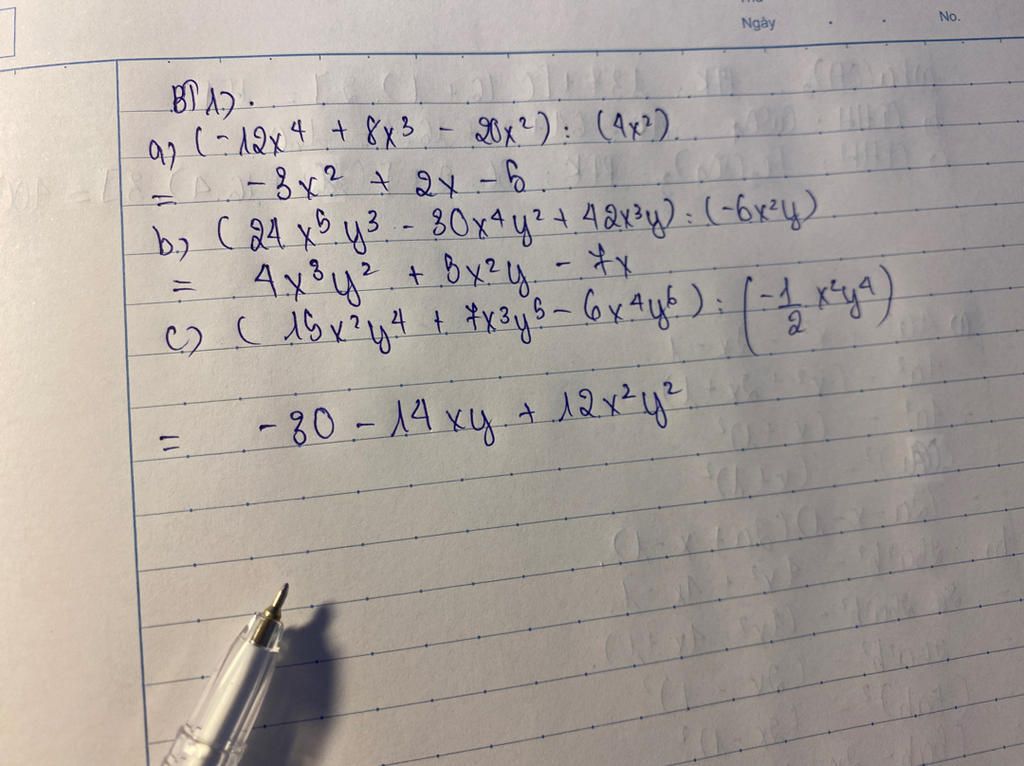 Ngày . . No.
BT 1).
a) (-12x⁴ + 8x³ - 20x²) : (4x²).
= -3x² + 2x - 5.
b) (24x⁵y³ - 30x⁴y² + 42x³y) : (-6x²y)
= 4x³y² + 5x²y - 7x
c) (15x²y⁴ + 7x³y⁵ - 6x⁴y⁶) : (-1/2 x²y⁴)
= -30 - 14xy + 12x²y²